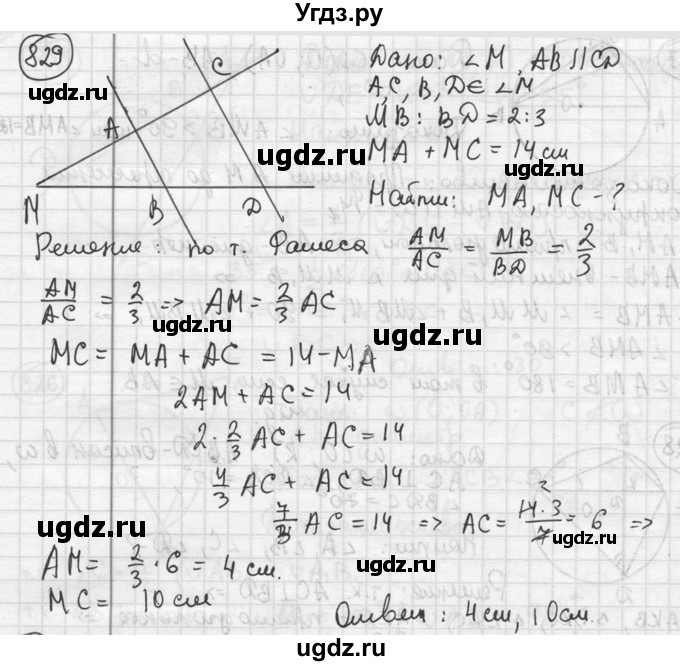 Угдз.ру
829
Дано: ∠M, AB ∥ CD
A, C, B, D ∈ ∠M
MB : BD = 2:3
MA + MC = 14 см
Найти: MA, MC - ?
C
A
M B D
Решение: по т. Фалеса AM/AC = MB/BD = 2/3
AM/AC = 2/3 => AM = 2/3 AC
MC = MA + AC = 14 - MA
2AM + AC = 14
2 · 2/3 AC + AC = 14
4/3 AC + AC = 14
7/3 AC = 14 => AC = 14·3/7 = 6 =>
2
AM = 2/3 · 6 = 4 см.
MC = 10 см
Ответ: 4 см, 10 см.
ugdz.ru
ugdz.ru
ugdz.ru
ugdz.ru
ugdz.ru
ugdz.ru
ugdz.ru
ugdz.ru
ugdz.ru
ugdz.ru
ugdz.ru